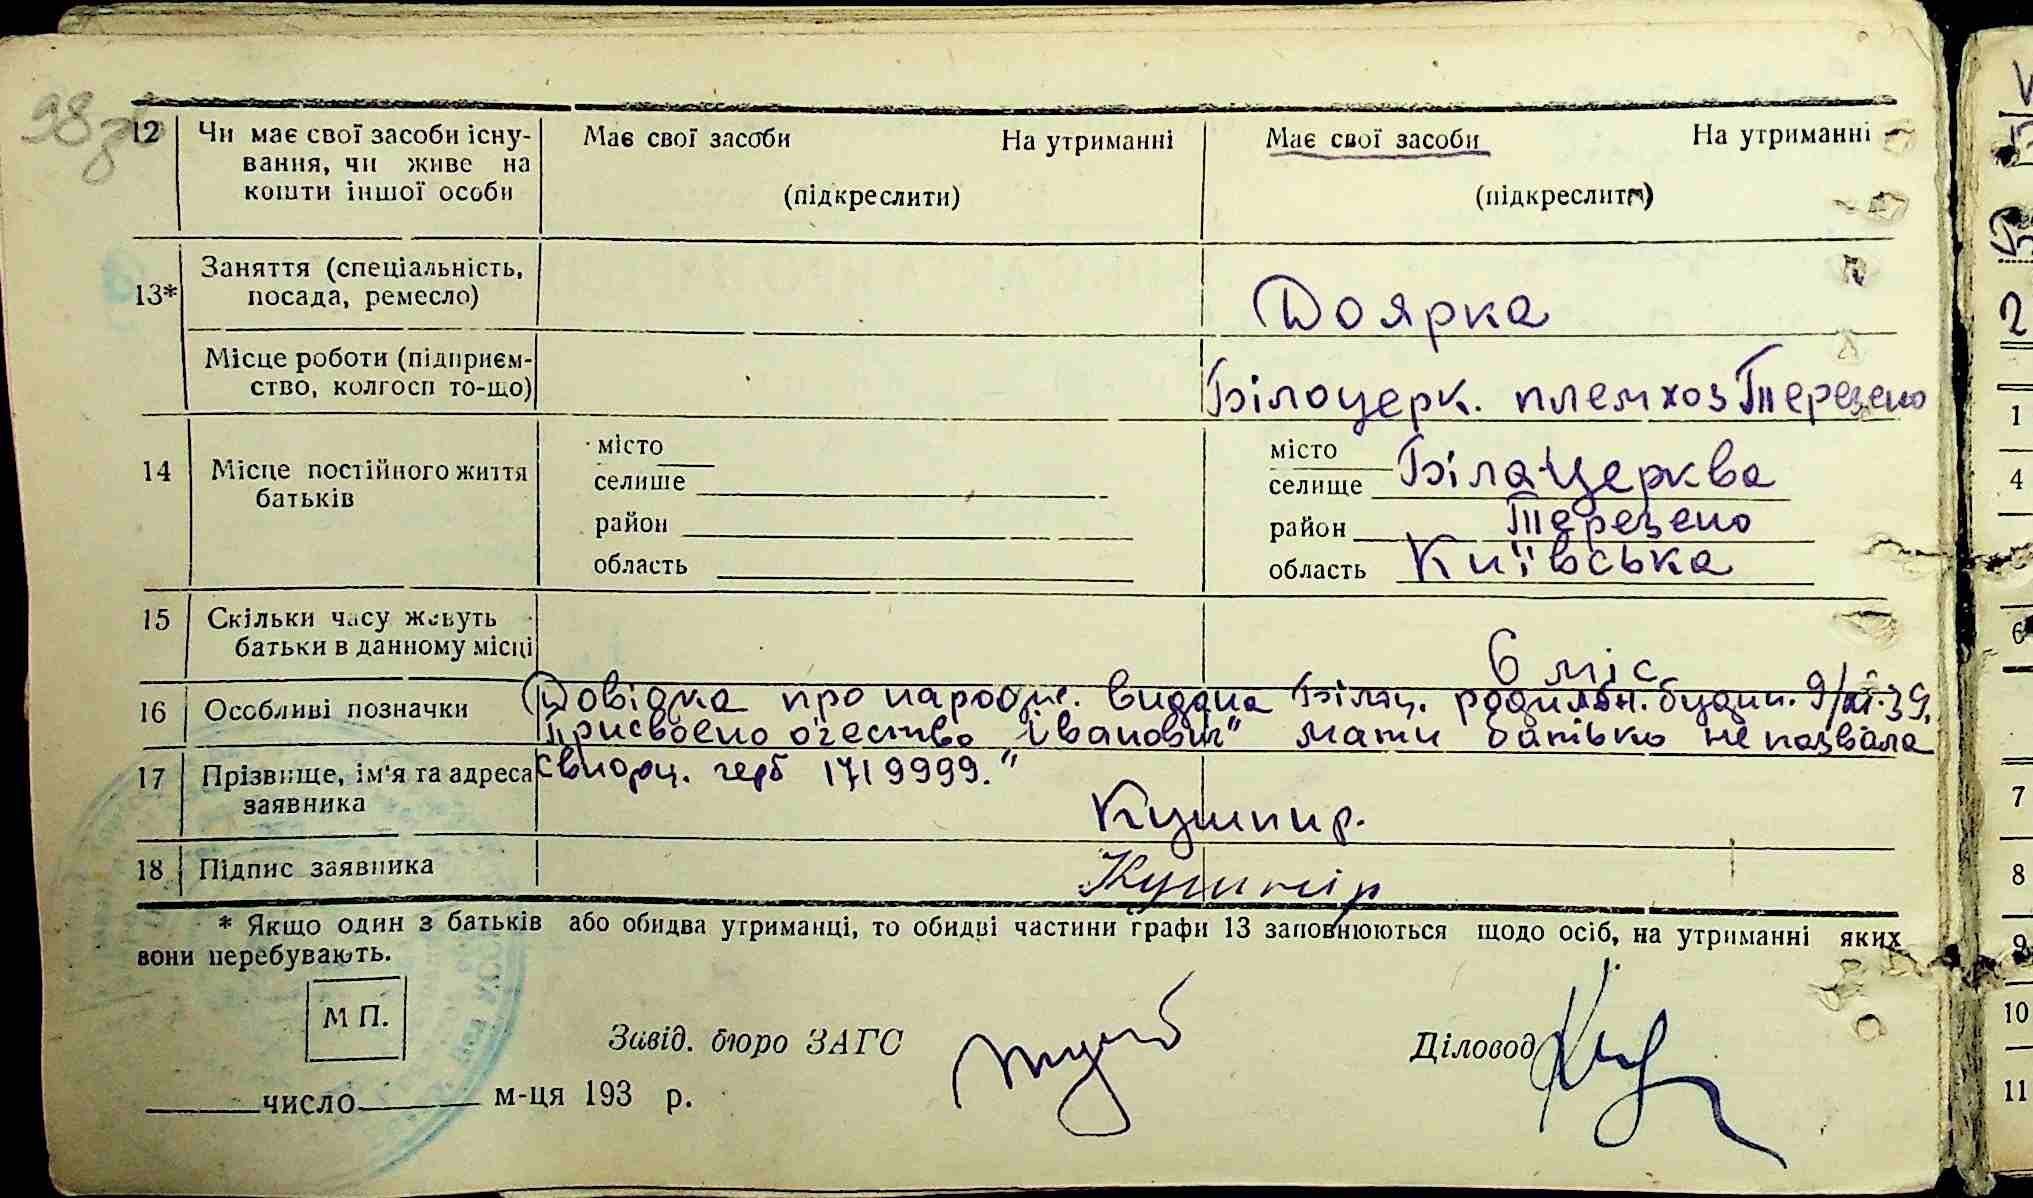 98 зв
12 Чи має свої засоби існу- Має свої засоби На утриманні Має свої засоби На утриманні
вання, чи живе на
кошти іншої особи (підкреслити) (підкреслити)
13* Заняття (спеціальність,
посада, ремесло) Доярка
Місце роботи (підприєм-
ство, колгосп то-що) Білоцерк. племхоз Терезено
14 Місце постійного життя
батьків
місто
селише
район
область
місто
селище Біла Церква
район Терезено
область Київська
15 Скільки часу живуть
батьки в данному місці 6 міс
16 Особливі позначки Довідка про народж. видана Білоц. родильн. будин. 9/XI-39.
Присвоено отчество "Іванович" мати батько не назвала
17 Прізвище, ім'я та адреса герб 1719999."
заявника Кушнир.
18 Підпис заявника Кушнір
* Якщо один з батьків або обидва утриманці, то обидві частини графи 13 заповнюються щодо осіб, на утриманні яких
вони перебувають.
М П.
Завід. бюро ЗАГС Діловод
число м-ця 193 р.
2
1
4
6
7
8
9
10
11